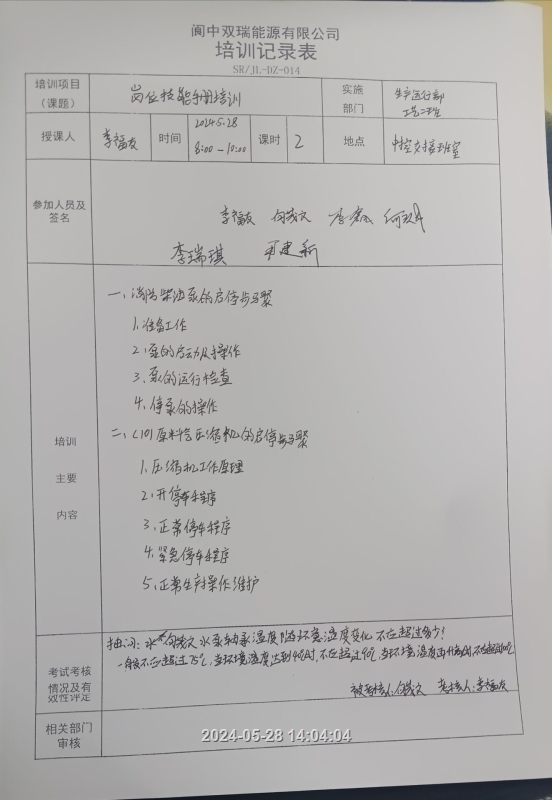 阆中双瑞能源有限公司
培训记录表
SR/JL-DZ-014
培训项目
（课题）
岗位技能手册培训
实施
部门
生产运行部
工艺二班
授课人
李福友
时间
2024.5.28
8:00-10:00
课时
2
地点
中控交接班室
参加人员及
签名
李福友
李瑞琪
培训
主要
内容
一、消防柴油泵的启停步骤
1.准备工作
2.泵的启动及操作
3.泵的运行检查
4.停泵的操作
二、C101原料气压缩机的启停步骤
1.压缩机工作原理
2.开停车程序
3.正常停车程序
4.紧急停车程序
5.正常生产操作维护
考试考核
情况及有
效性评定
水泵轴承温度随环境温度变化不应超过多少？
一般不应超过75℃，当环境温度达到40℃时，不应超过
被考核人： 考核人：李福友
相关部门
审核
2024-05-28 14:04:04